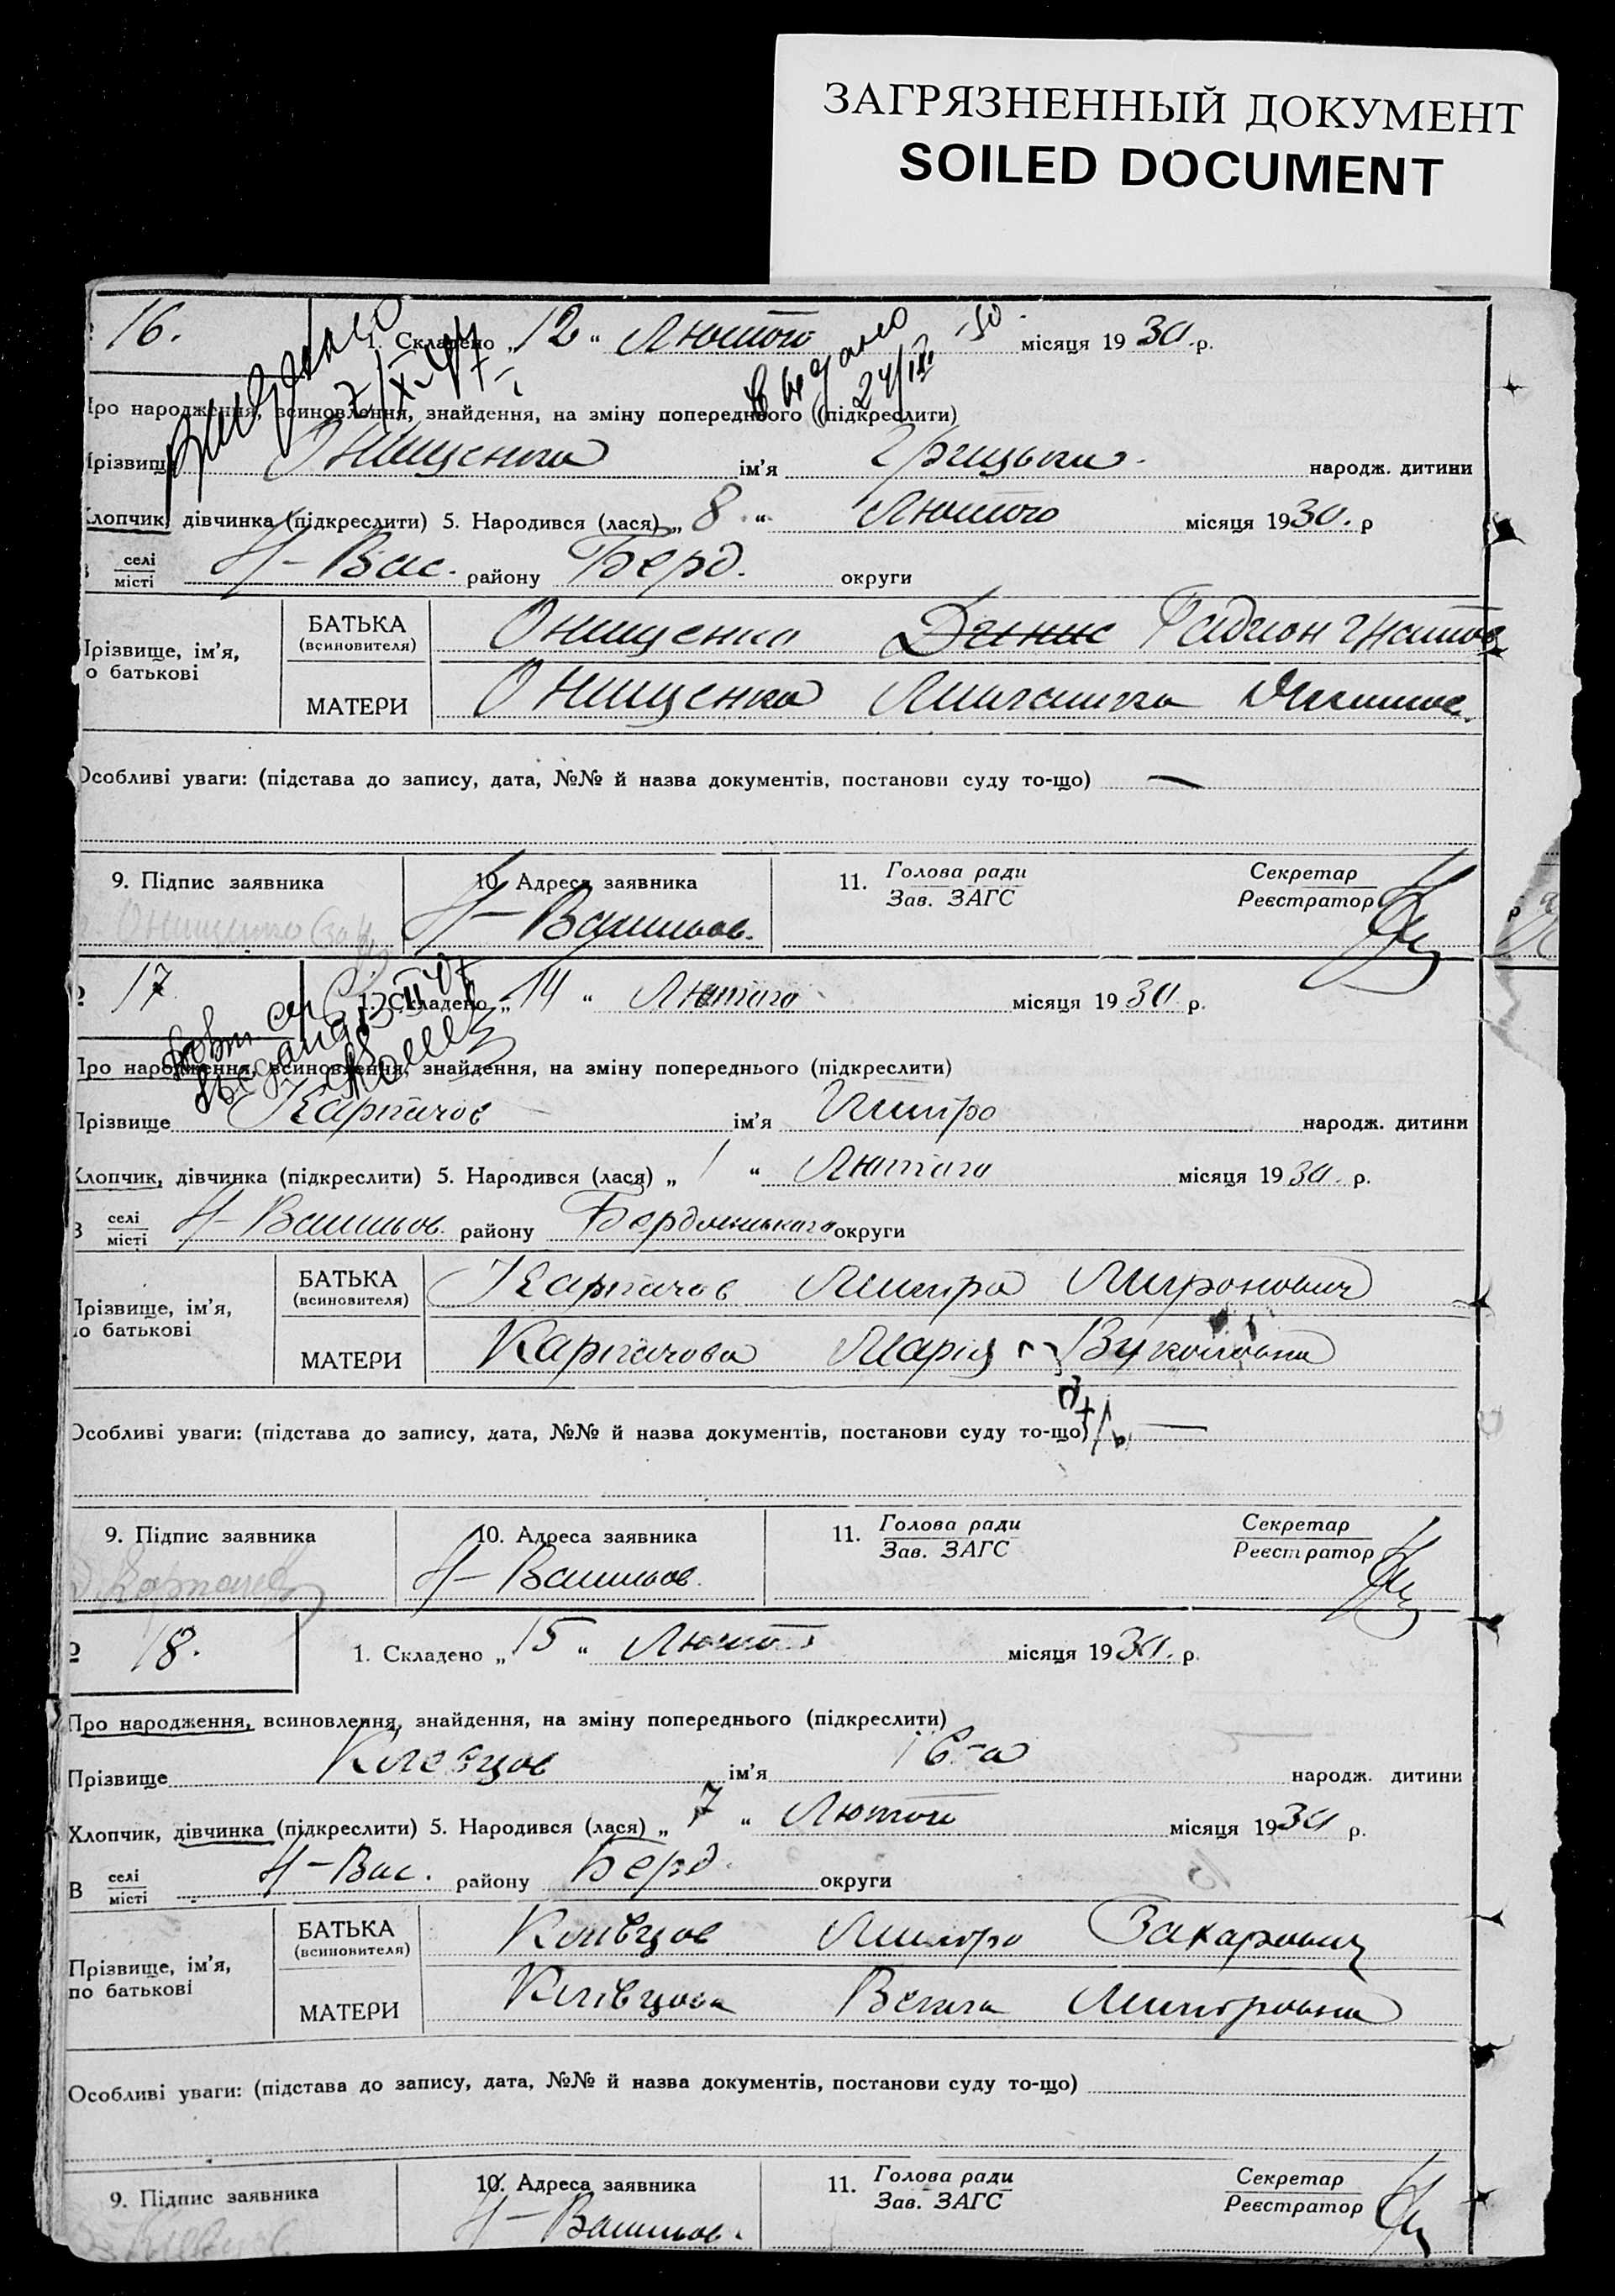 ЗАГРЯЗНЕННЫЙ ДОКУМЕНТ
SOILED DOCUMENT
16. 1. Складено „ 12 “ Лютого місяця 1930 р.
Про народження, всиновлення, знайдення, на зміну попереднього (підкреслити)
Прізвище Онищенко ім’я Грицько народж. дитини
Хлопчик, дівчинка (підкреслити) 5. Народився (лася) „ 8 “ Лютого місяця 1930. р
В селі місті Н-Вас. району Берд. округи
Прізвище, ім’я, по батькові
БАТЬКА (всиновителя) Онищенко Радион Гнатов
МАТЕРИ Онищенко
Особливі уваги: (підстава до запису, дата, №№ й назва документів, постанови суду то-що) —
9. Підпис заявника 10. Адреса заявника 11. Голова ради Зав. ЗАГС Секретар Реєстратор
Онищенко Н-Васильов.
17 1. Складено „ 14 “ Лютого місяця 1930 р.
Про народження, всиновлення, знайдення, на зміну попереднього (підкреслити)
Прізвище Карпачов ім’я народж. дитини
Хлопчик, дівчинка (підкреслити) 5. Народився (лася) „ 1 “ Лютого місяця 1930. р.
В селі місті Н-Васильов. району Бердянського округи
Прізвище, ім’я, по батькові
БАТЬКА (всиновителя) Карпачов Дмитро Миронович
МАТЕРИ Карпачова Марія Вуколовна
Особливі уваги: (підстава до запису, дата, №№ й назва документів, постанови суду то-що) —
9. Підпис заявника 10. Адреса заявника 11. Голова ради Зав. ЗАГС Секретар Реєстратор
Д. Карпачев Н-Васильов.
18. 1. Складено „ 15 “ Лютого місяця 1930. р.
Про народження, всиновлення, знайдення, на зміну попереднього (підкреслити)
Прізвище ім’я народж. дитини
Хлопчик, дівчинка (підкреслити) 5. Народився (лася) „ 7 “ Лютого місяця 1930 р.
В селі місті Н-Вас. району Берд. округи
Прізвище, ім’я, по батькові
БАТЬКА (всиновителя) Киівцов Дмитро Захарович
МАТЕРИ Киівцова Дмитровна
Особливі уваги: (підстава до запису, дата, №№ й назва документів, постанови суду то-що)
9. Підпис заявника 10. Адреса заявника 11. Голова ради Зав. ЗАГС Секретар Реєстратор
Н-Васильов.